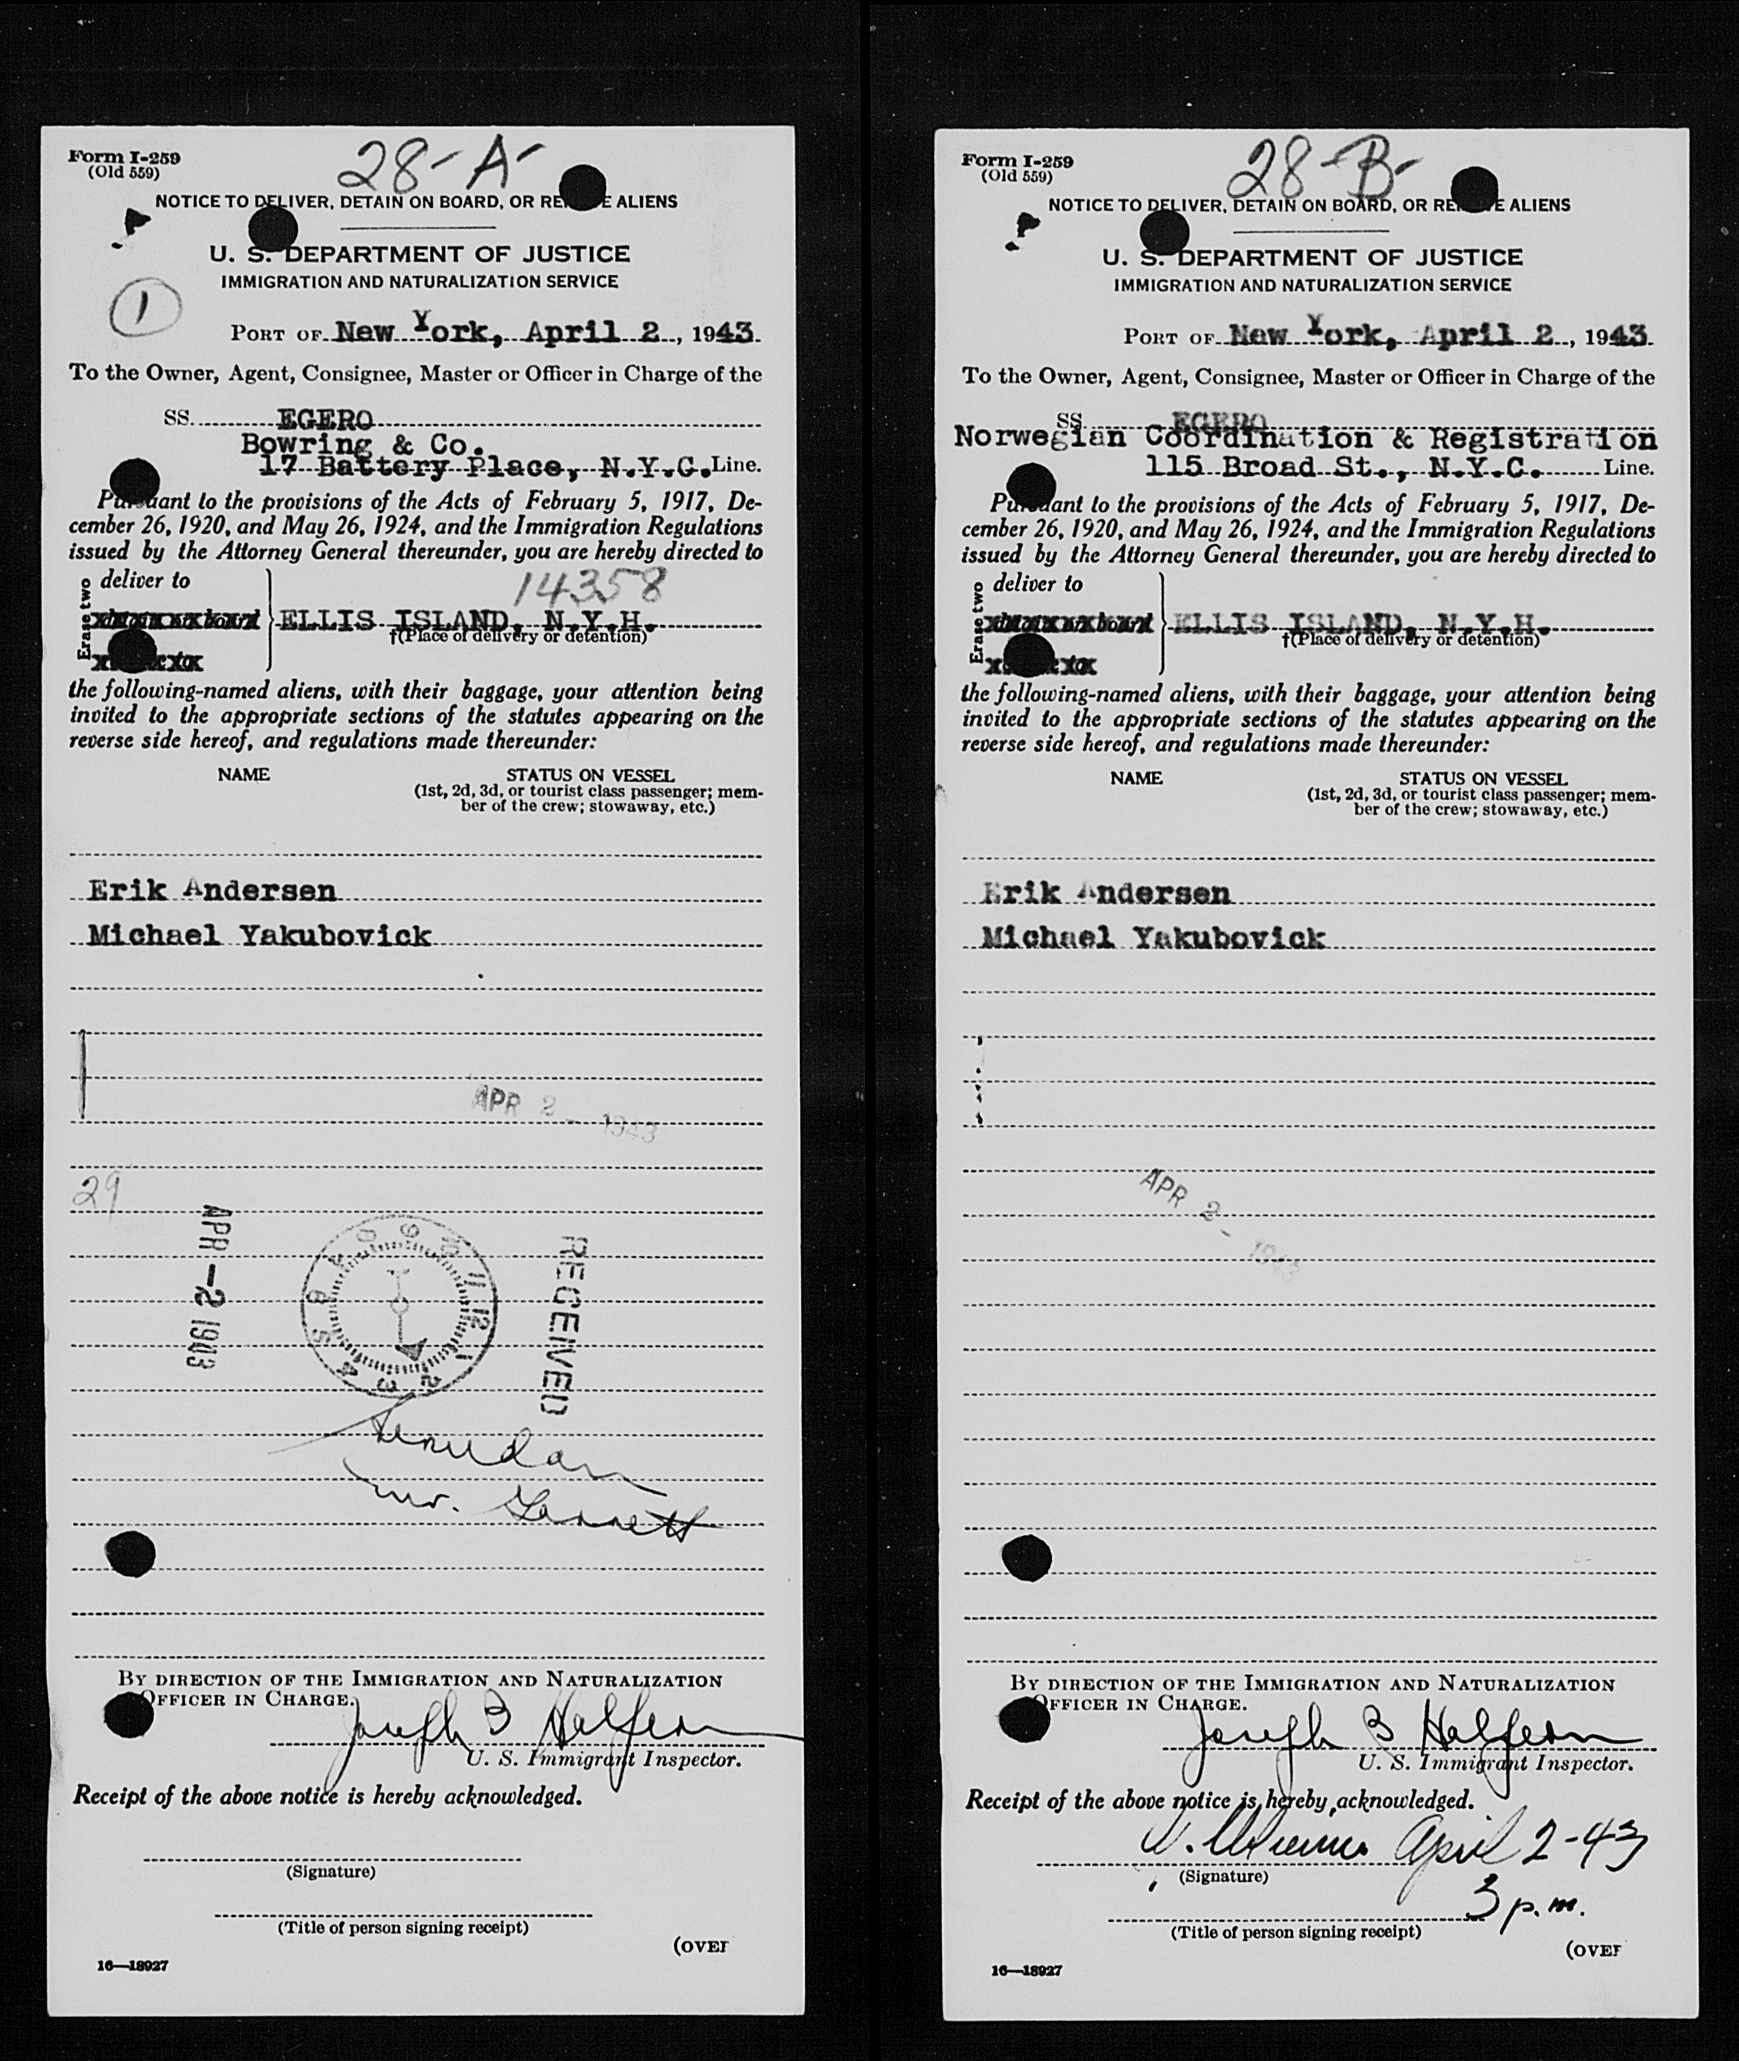 Form I-259
(Old 559)
28-A-
NOTICE TO DELIVER, DETAIN ON BOARD, OR RE E ALIENS
U. S. DEPARTMENT OF JUSTICE
IMMIGRATION AND NATURALIZATION SERVICE
1
PORT OF New York, April 2, 1943.
To the Owner, Agent, Consignee, Master or Officer in Charge of the
SS. EGERO
Bowring & Co.
17 Battery Place, N.Y.C. Line.
Pursuant to the provisions of the Acts of February 5, 1917, De-
cember 26, 1920, and May 26, 1924, and the Immigration Regulations
issued by the Attorney General thereunder, you are hereby directed to
Erase two
deliver to
14358
ELLIS ISLAND, N.Y.H.
†(Place of delivery or detention)
the following-named aliens, with their baggage, your attention being
invited to the appropriate sections of the statutes appearing on the
reverse side hereof, and regulations made thereunder:
NAME
STATUS ON VESSEL
(1st, 2d, 3d, or tourist class passenger; mem-
ber of the crew; stowaway, etc.)
Erik Andersen
Michael Yakubovick
APR 2 - 1943
29
APR -2 1943
9 10 11 12 1 2 3 4 5 6 7 8
RECEIVED
mr. Garrett
BY DIRECTION OF THE IMMIGRATION AND NATURALIZATION
OFFICER IN CHARGE.
Joseph B Halfern
U. S. Immigrant Inspector.
Receipt of the above notice is hereby acknowledged.
(Signature)
(Title of person signing receipt)
(OVER
16—18927
Form I-259
(Old 559)
28-B-
NOTICE TO DELIVER, DETAIN ON BOARD, OR RE E ALIENS
U. S. DEPARTMENT OF JUSTICE
IMMIGRATION AND NATURALIZATION SERVICE
PORT OF New York, April 2, 1943.
To the Owner, Agent, Consignee, Master or Officer in Charge of the
SS. EGERO
Norwegian Coordination & Registration
115 Broad St., N.Y.C. Line.
Pursuant to the provisions of the Acts of February 5, 1917, De-
cember 26, 1920, and May 26, 1924, and the Immigration Regulations
issued by the Attorney General thereunder, you are hereby directed to
Erase two
deliver to
ELLIS ISLAND, N.Y.H.
†(Place of delivery or detention)
the following-named aliens, with their baggage, your attention being
invited to the appropriate sections of the statutes appearing on the
reverse side hereof, and regulations made thereunder:
NAME
STATUS ON VESSEL
(1st, 2d, 3d, or tourist class passenger; mem-
ber of the crew; stowaway, etc.)
Erik Andersen
Michael Yakubovick
APR 2 - 1943
BY DIRECTION OF THE IMMIGRATION AND NATURALIZATION
OFFICER IN CHARGE.
Joseph B Halfern
U. S. Immigrant Inspector.
Receipt of the above notice is hereby acknowledged.
April 2-43
(Signature)
3 p.m.
(Title of person signing receipt)
(OVER
16—18927